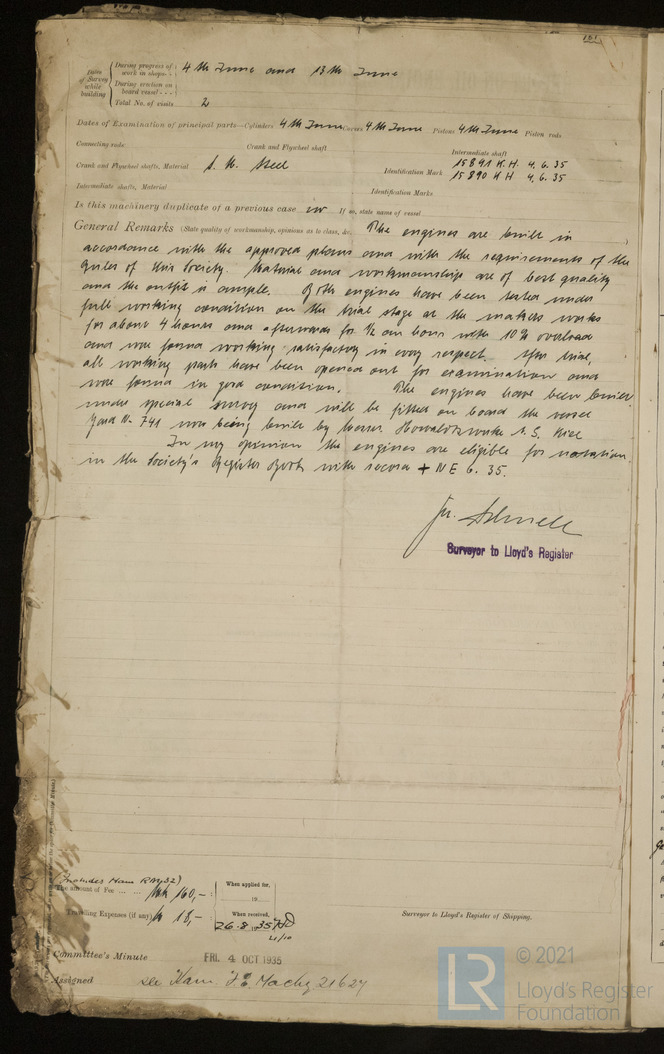 151
Dates of Survey while building
During progress of work in shops - - 4th June and 13th June
During erection on board vessel - - -
Total No. of visits 2
Dates of Examination of principal parts—Cylinders 4th June Covers 4th June Pistons 4th June Piston rods
Connecting rods Crank and Flywheel shaft Intermediate shaft
Crank and Flywheel shafts, Material S. M. Steel Identification Mark 15891 K.H. 4.6.35
15890 K H 4.6.35
Intermediate shafts, Material Identification Marks
Is this machinery duplicate of a previous case no If so, state name of vessel
General Remarks (State quality of workmanship, opinions as to class, &c. The engines are built in
accordance with the approved plans and with the requirements of the
Rules of this Society. Material and workmanship are of best quality
and the outfit is ample. Both engines have been tested under
full working condition on the trial stage at the makers works
for about 4 hours and afterwards for ½ an hour with 10% overload
and were found working satisfactory in every respect. After trial,
all working parts have been opened out for examination and
were found in good condition. The engines have been built
under special survey and will be fitted on board the vessel
Yard No. 741 now being built by Messrs. Howaldtswerke A.G. Kiel
In my opinion the engines are eligible for notation
in the Society's Register Book with record + NE 6.35.
Surveyor to Lloyd's Register
(Includes Ham
The amount of Fee ... ... Mk 160,- : When applied for,
19
Travelling Expenses (if any) 18,- : When received,
26.8.1935
4/10
Surveyor to Lloyd's Register of Shipping.
Committee's Minute FRI. 4 OCT 1935
Assigned See Ham J.E. Machy 21627
LR
© 2021
Lloyd's Register
Foundation